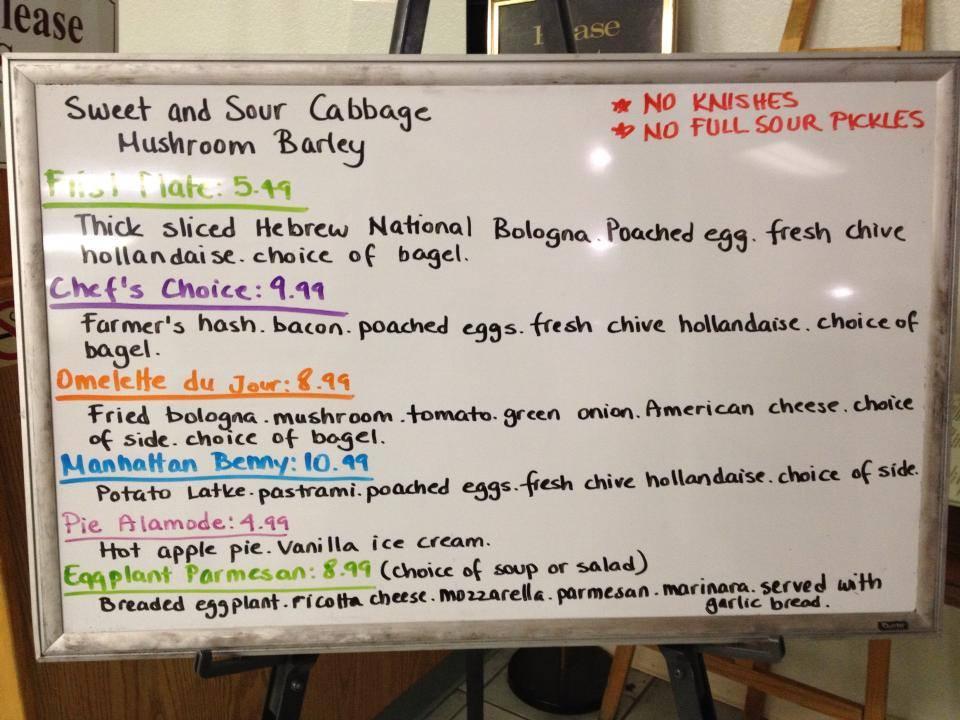 lease
ase
Sweet and Sour Cabbage
Mushroom Barley
* NO KNISHES
* NO FULL SOUR PICKLES
Plate: 5.49
Thick sliced Hebrew National Bologna. Poached egg. fresh chive
hollandaise. choice of bagel.
Chef's Choice: 9.99
Farmer's hash. bacon. poached eggs. fresh chive hollandaise. choice of
bagel.
Omelette du Jour: 8.99
Fried bologna. mushroom. tomato. green onion. American cheese. choice
of side. choice of bagel.
Manhattan Benny: 10.99
Potato Latke. pastrami. poached eggs. fresh chive hollandaise. choice of side.
Pie Alamode: 4.99
Hot apple pie. Vanilla ice cream.
Eggplant Parmesan: 8.99 (choice of soup or salad)
Breaded eggplant. ricotta cheese. mozzarella. parmesan. marinara. served with
garlic bread.